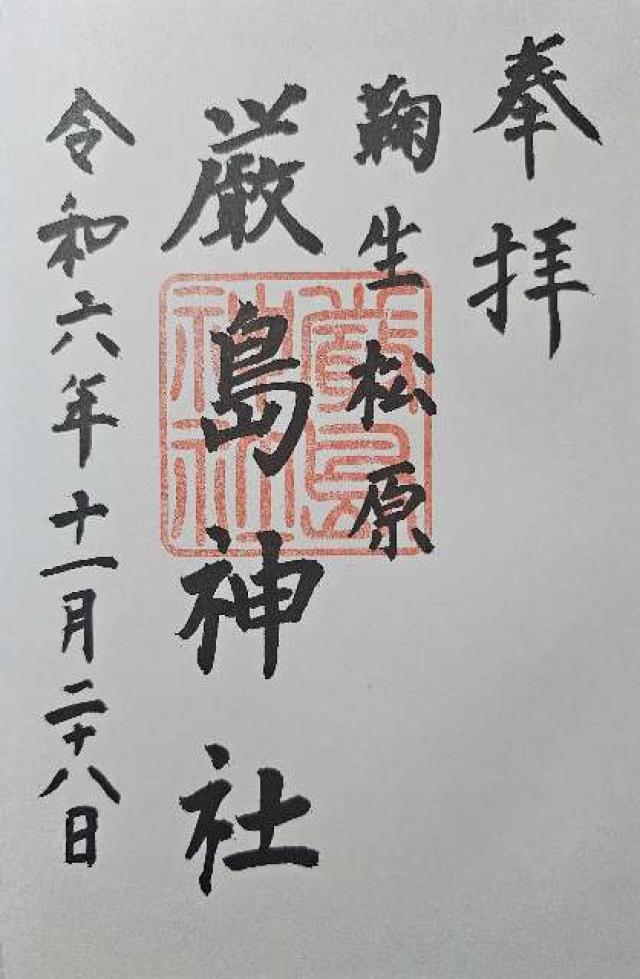 奉拝
鞠生松原
厳島神社
厳島神社
令和六年十一月二十八日